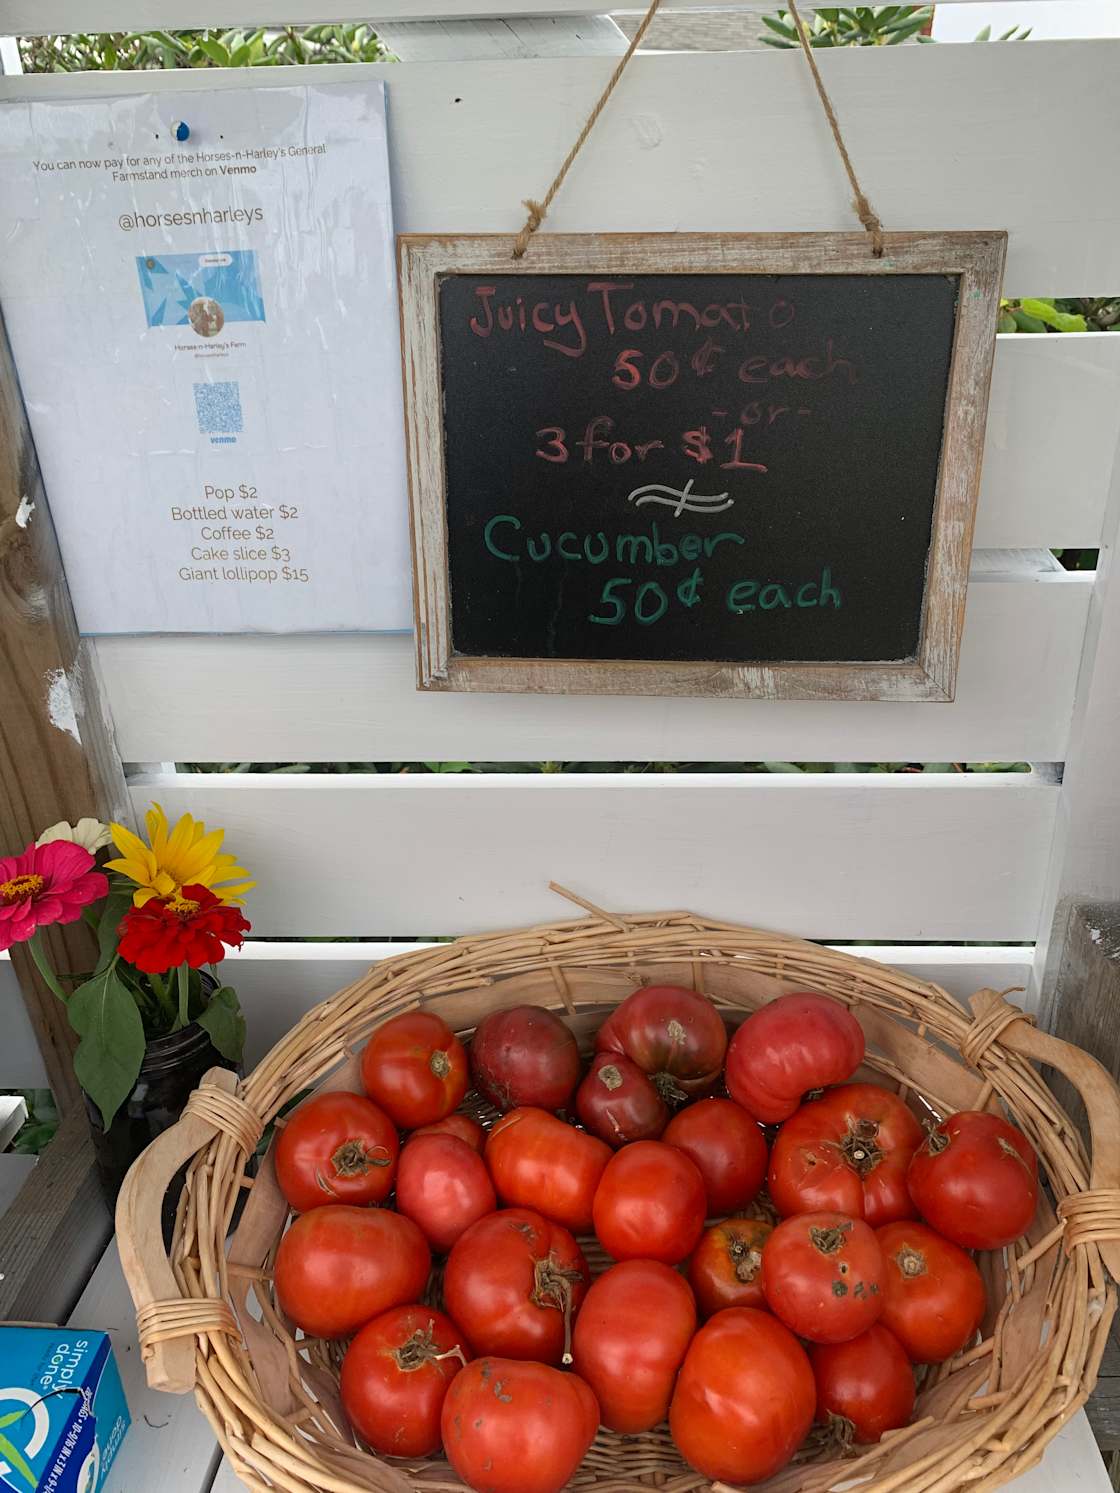 You can now pay for any of the Horses-n-Harley's General
Farmsland merch on Venmo
@horsesnharleys
Horses-n-Harley's Farm
venmo
Pop $2
Bottled water $2
Coffee $2
Cake slice $3
Giant lollipop $15
Juicy Tomato
50¢ each
-or-
3 for $1
Cucumber
50¢ each
simply
done